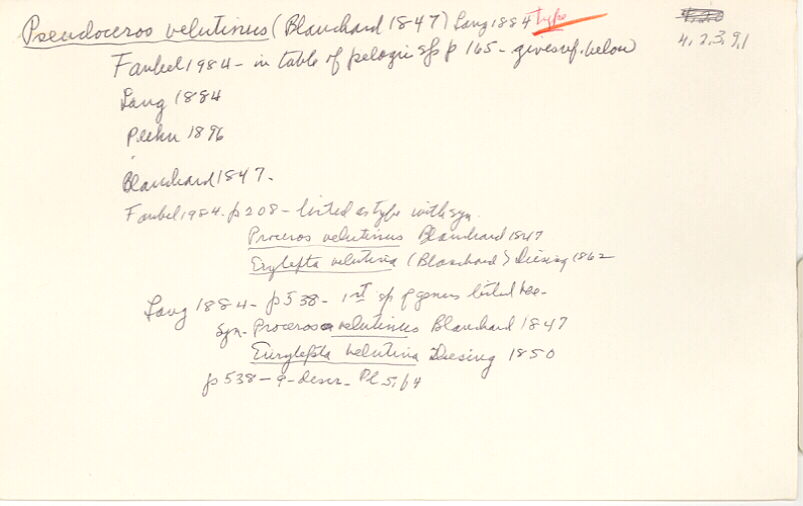 Pseudoceros velutinus (Blanchard 1847) Lang 1884 type
4.2.3.9.1
Faubel 1984 - in table of pelagic sps p 165 - gives ref. below
Lang 1884
Plehn 1896
Blanchard 1847.
Faubel 1984. p 208 - listed as type with syn.
Proceros velutinus Blanchard 1847
Erylepta velutina (Blanchard) Diesing 1862
Lang 1884 - p 538 - 1st sp of genus listed here.
Syn. Proceros velutinus Blanchard 1847
Eurylepta velutina Diesing 1850
p 538 - 9 - descr. Pl 5, f 4